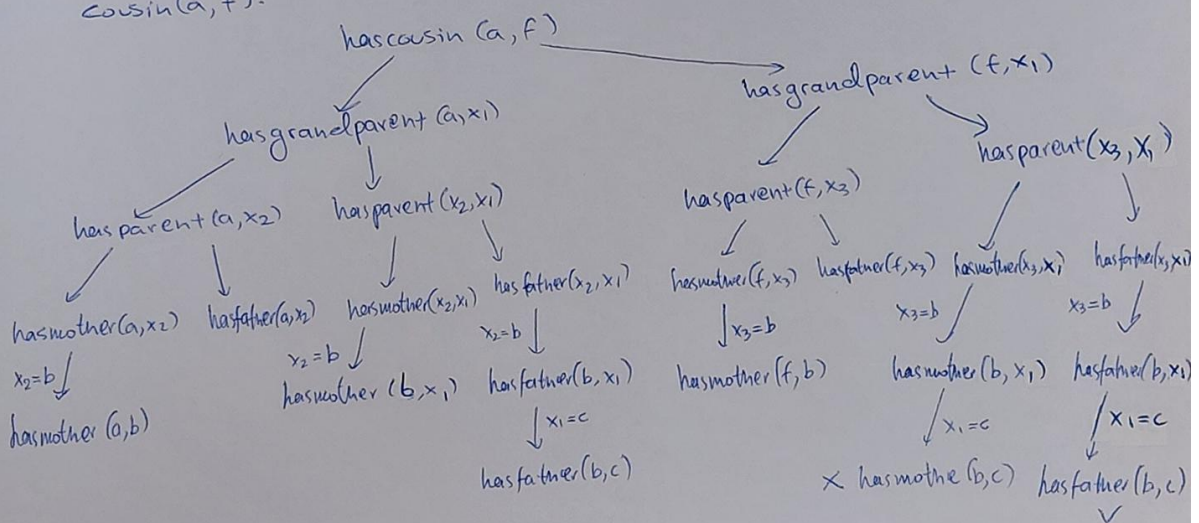 cousin(a, f).
hascousin (a, f)
hasgrandparent (f, x1)
hasgrandparent (a, x1)
hasparent (x3, x1)
hasparent (a, x2)
hasparent (x2, x1)
hasparent (f, x3)
hasmother (a, x2)
hasfather (a, x2)
hasmother (x2, x1)
hasfather (x2, x1)
hasmother (f, x3)
hasfather (f, x3)
hasmother (x3, x1)
hasfather (x3, x1)
x2=b
x2=b
x2=b
x3=b
x3=b
x3=b
hasmother (a,b)
hasmother (b, x1)
hasfather (b, x1)
hasmother (f, b)
hasmother (b, x1)
hasfather (b, x1)
x1=c
x1=c
x1=c
hasfather (b, c)
x hasmothe (b, c)
hasfather (b, c)